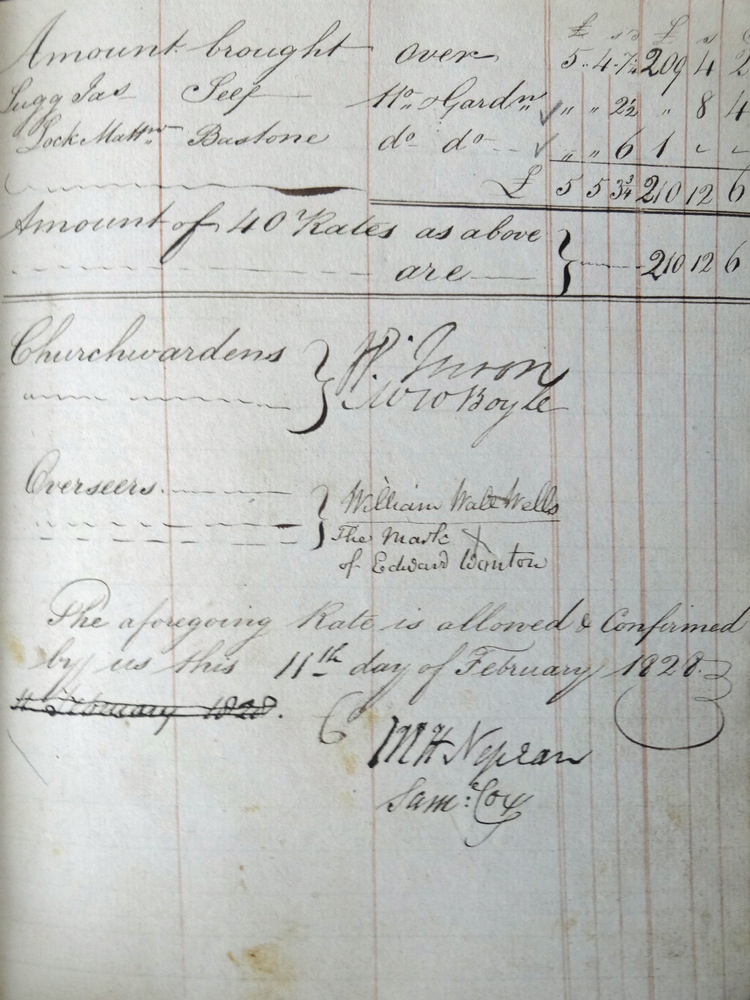 £ s d £ s
Amount brought over 5 " 4 " 7¼ 209 4 2
Lugg Jas Seef Ho " & Gardn " " " 2½ " 8 4
Lock Mattw Bastone do do " " 6 1 - -
£ 5 5 3¾ 210 12 6
Amount of 40 Rates as above
are 210 12 6
Churchwardens
W W Boyle
Overseers William Wells
The Mark X
of Edward Winton
The aforegoing Rate is allowed & Confirmed
by us this 11th day of February 1828.
11 February 1828.
M H Nepean
Sam: Cox